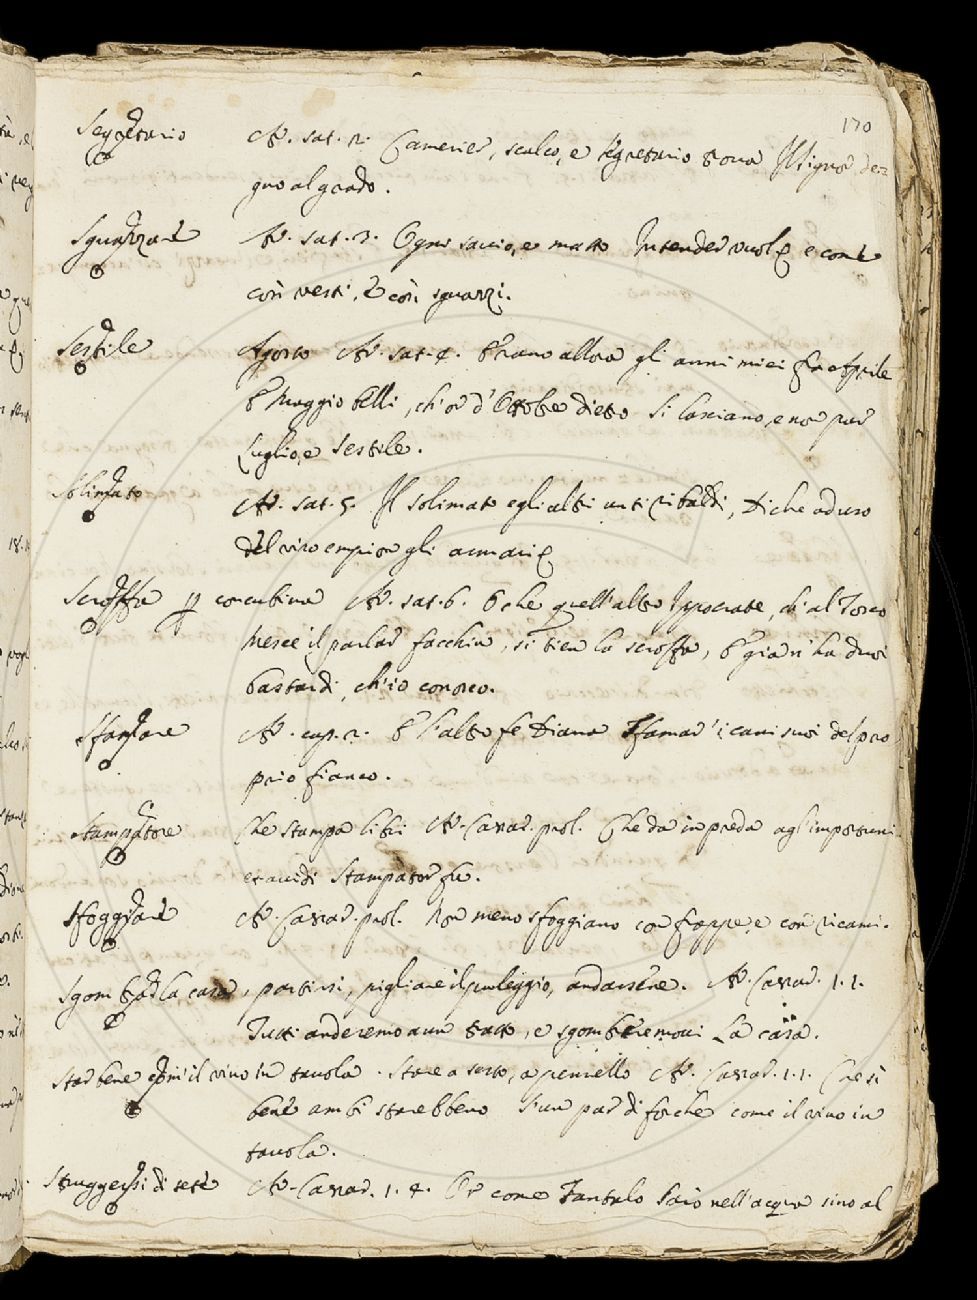 170
Segretario Ar. sat. 2. Camerier, scalco, e segretario trova Il signor de=
gno al grado.
Sguazzare Ar. sat. 3. Ogni saccio, e matto Intender vuol come
così vesti, e così sguazzi.
Sestile Agosto Ar. sat. 4. Erano allora gli anni miei fra Aprile
E Maggio belli, ch'or d'Ottobre dietro Si lasciano, e non pur
Luglio, e Sestile.
Solimato Ar. sat. 5. Il solimato e gli altri unti ribaldi, Di che ad uso
del viso empion gli armarii
Scroffa concubina Ar. sat. 6. E che quell'altro Ippocrate, ch'al Tosco
Mesce il parlar facchin, si tien la scroffa, E già n'ha dui
bastardi, ch'io conosco.
Sfamare Ar. cap. 2. E l'altro fe Diana Sfamar i cani suoi del pro
prio fianco.
Stampatore Che stampa libri Ar. Cassar. prol. Che da in preda agl'importuni
et avidi Stampator fu.
Sfoggiare Ar. Cassar. prol. Non meno sfoggiano con frappe, e con ricami.
Sgombrar la casa, partirsi, pigliare il puleggio, andarsene. Ar. Cassar. 1. 1.
Tutti anderemo a un tratto, e sgombreremovi La casa.
Star bene com'il vino in tavola. Stare a sesto, a penello Ar. Cassar. 1. 1. Che si
bene ambi starebbeno S'un par di forche come il vino in
tavola.
Struggersi di sete Ar. Cassar. 1. 4. Or come Tantalo Sarò nell'acqua sino al